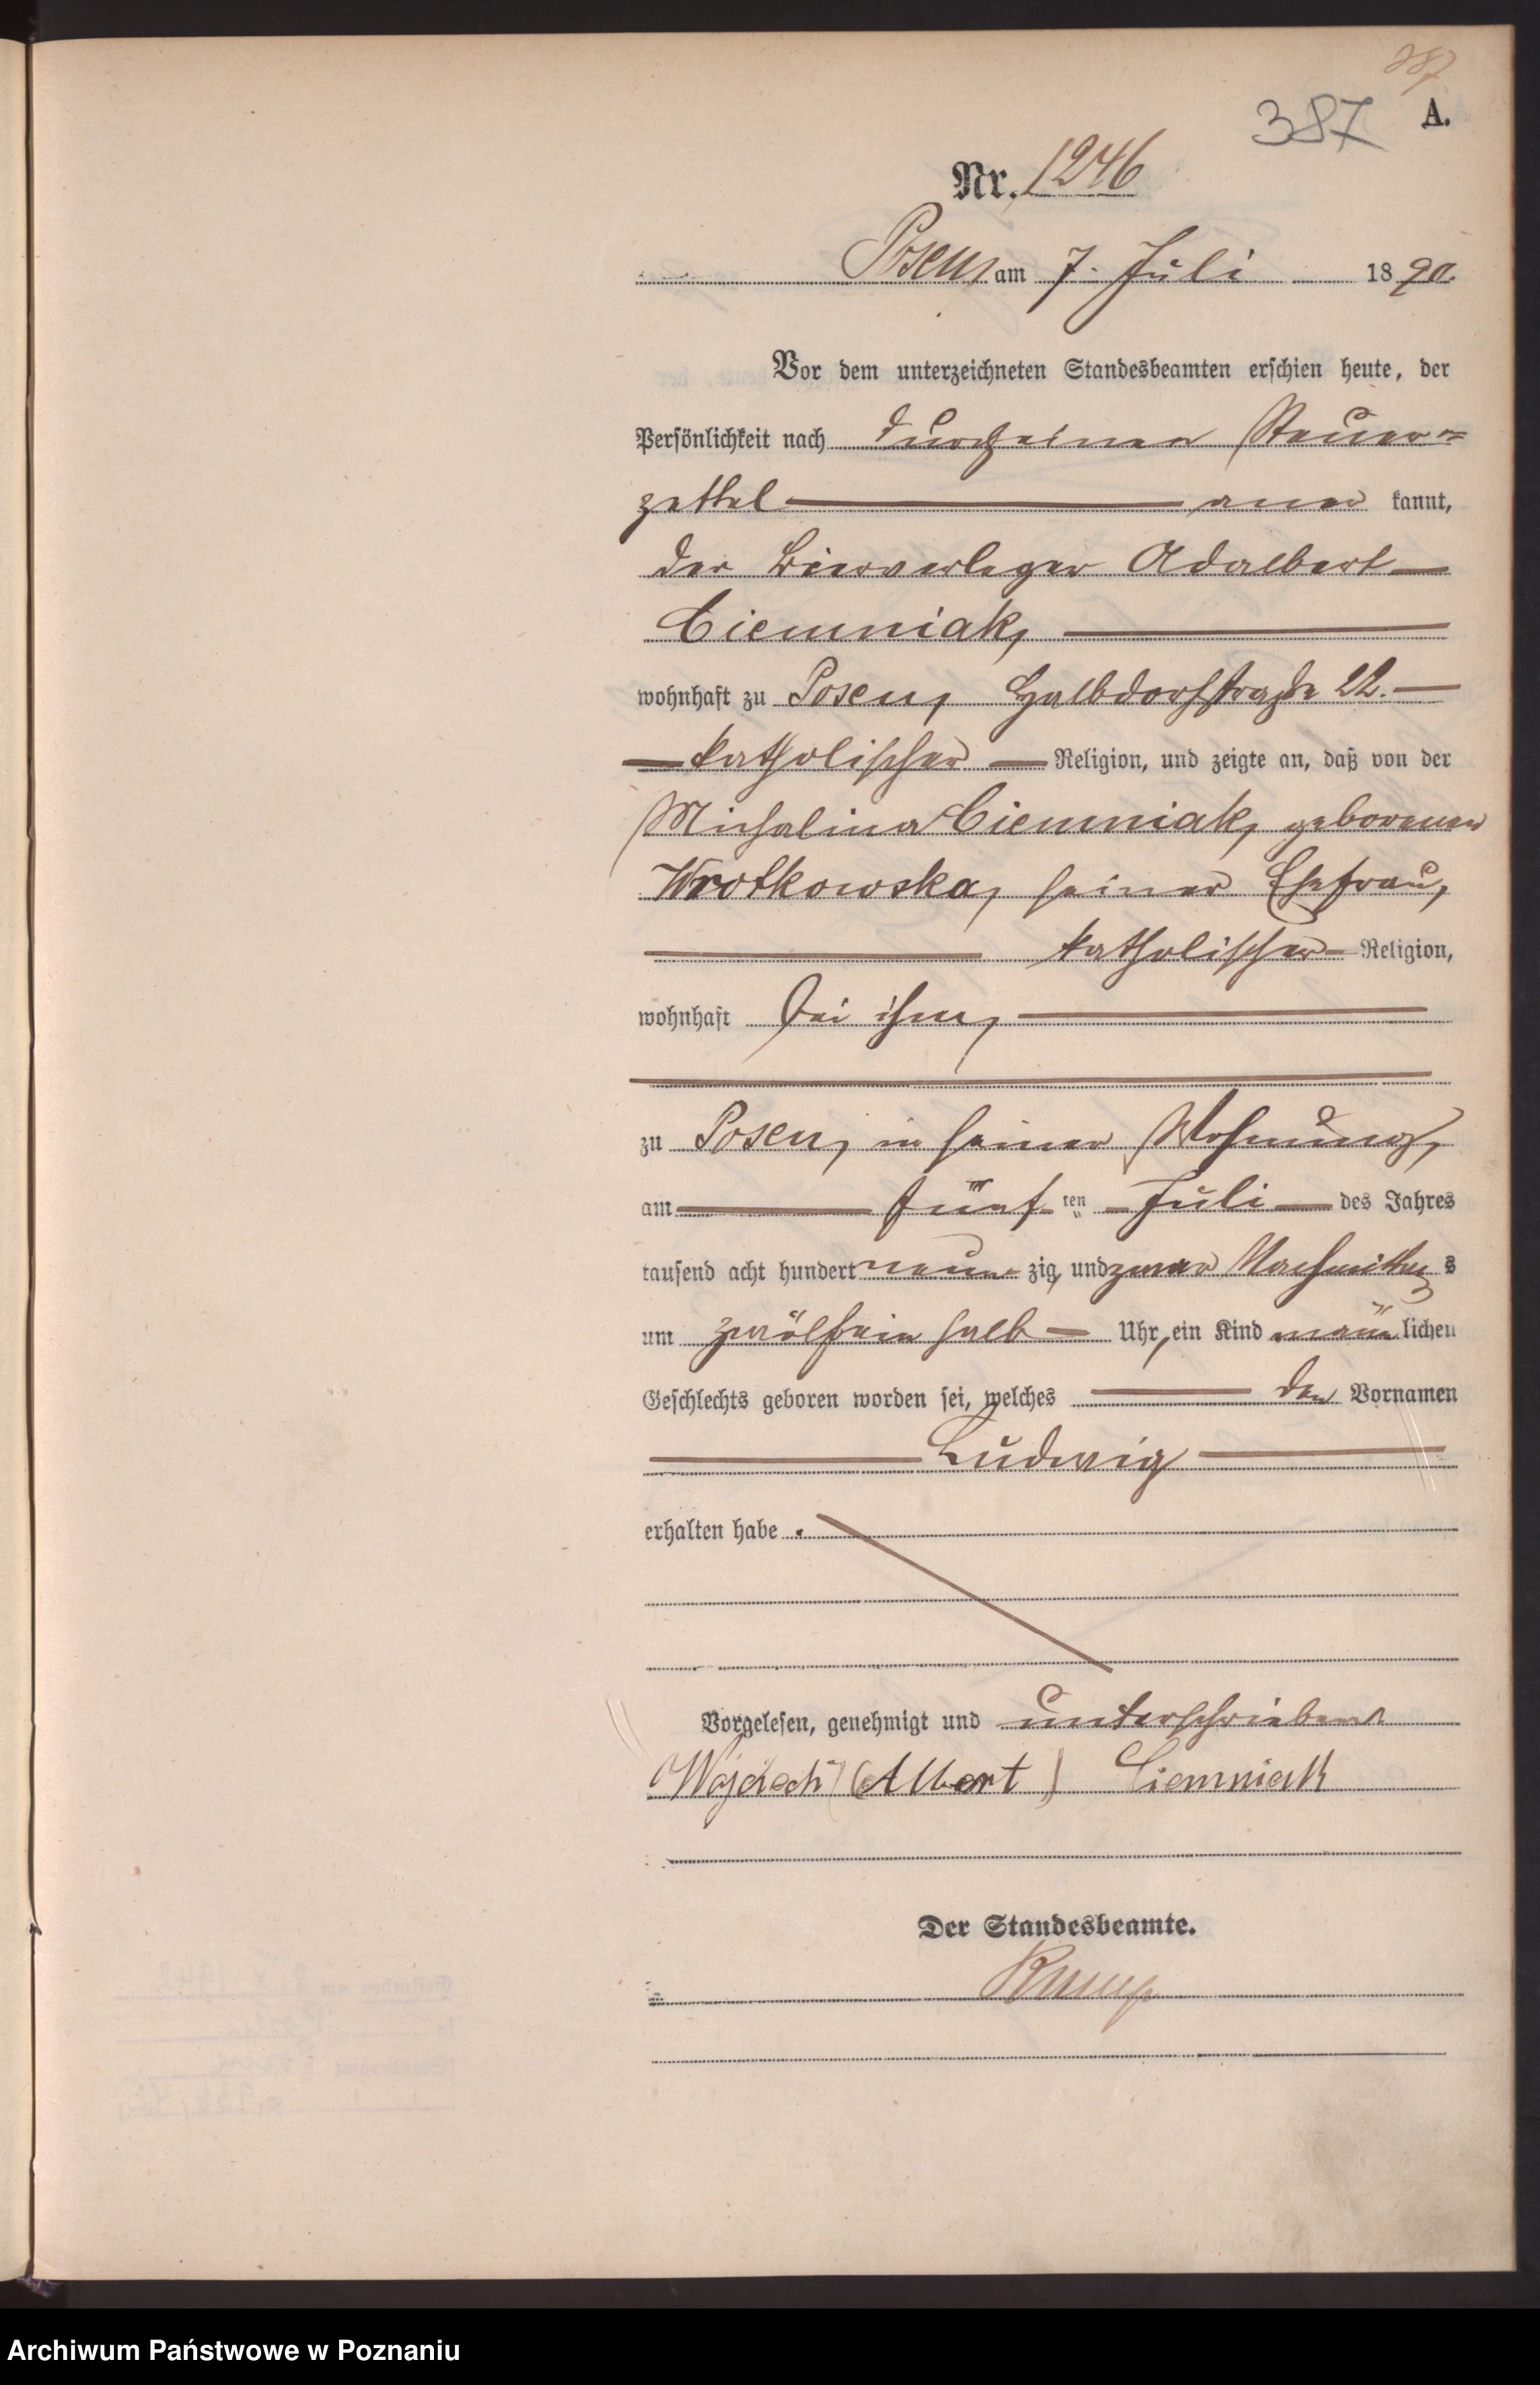 387
387
A.
Nr. 1246
Posen, am 7. Juli 1890.
Vor dem unterzeichneten Standesbeamten erschien heute, der
Persönlichkeit nach durch einen Steuer-
zettel aner kannt,
der Bierverleger Adalbert
Ciemniak,
wohnhaft zu Posen, Halbdorfstraße 22.
katholischer Religion, und zeigte an, daß von der
Michalina Ciemniak, geborenen
Wrotkowska, seiner Ehefrau,
katholischer Religion,
wohnhaft bei ihm,
zu Posen, in seiner Wohnung,
am fünf ten Juli des Jahres
tausend acht hundert neun zig, und zwar Nachmittags
um zwölfein halb Uhr, ein Kind männ lichen
Geschlechts geboren worden sei, welches den Vornamen
Ludwig
erhalten habe.
Vorgelesen, genehmigt und unterschrieben
Wojciech (Albert) Ciemniak
Der Standesbeamte.
Archiwum Państwowe w Poznaniu